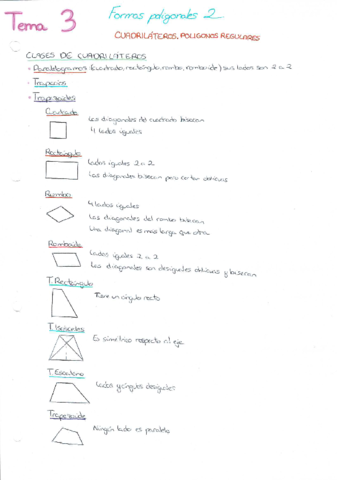 Tema 3
Formas poligonales 2
CUADRILÁTEROS. POLIGONOS REGULARES
CLASES DE CUADRILÁTEROS
- Paralelogramos (cuadrado, rectángulo, rombo, romboide) sus lados son 2 a 2
- Trapecios
- Trapezoides
Cuadrado
Las diagonales del cuadrado bisecan
4 lados iguales
Rectángulo
Lados iguales 2 a 2
Las diagonales bisecan pero cortan oblicuas
Rombo
4 lados iguales
Las diagonales del rombo bisecan
Una diagonal es mas larga que otra
Romboide
Lados iguales 2 a 2
Las diagonales son desiguales oblicuas y bisecan
T. Rectángulo
Tiene un ángulo recto
T. Isósceles
Es simétrico respecto al eje
T. Escaleno
Lados y ángulos desiguales
Trapezoide
Ningún lado es paralelo